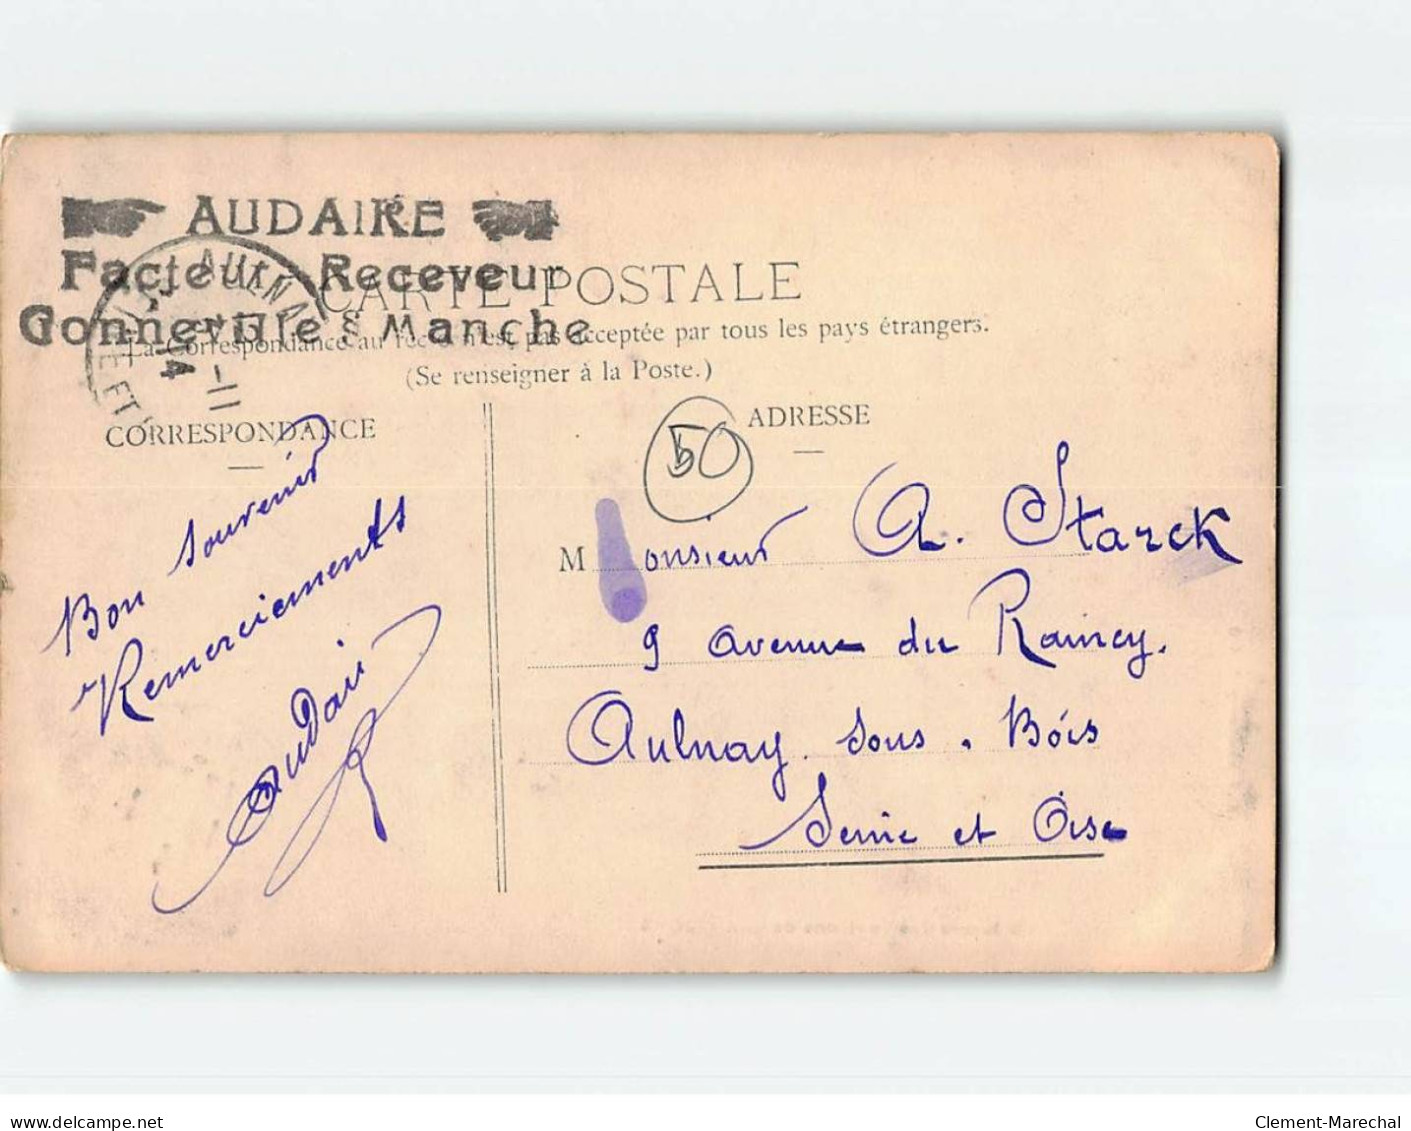 AUDAIRE
Facteur - Receveur
Gonneville § Manche
AULNAY
ET
14
11
CARTE POSTALE
La Correspondance au recto n'est pas acceptée par tous les pays étrangers.
(Se renseigner à la Poste.)
CORRESPONDANCE
ADRESSE
50
Bon souvenir
Remerciements
Audair
Monsieur A. Starck
9 avenue du Raincy.
Aulnay sous . Bois
Seine et Oise
www.delcampe.net
Clement-Marechal